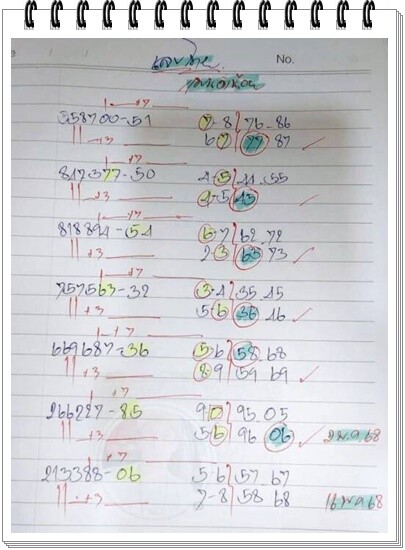 No.
+7
558700-51 7-8 76-86
+3 6 7 77 87
+7
847377-50 4-5 44-55
+3 4-5
+7
818894-54 6-7 62-72
+3 2-3 63 73
+7
757563-32 3-4 35 45
+3 5 6 36 46
+7
669687-36 5-6 58 68
+3 8 9 59 69
+7
266227-85 9 0 95 05
+3 5 6 96 06 2 พ.ค 68
+7
213388-06 5-6 57-67
+3 7-8 58 68 16 พ.ค 68